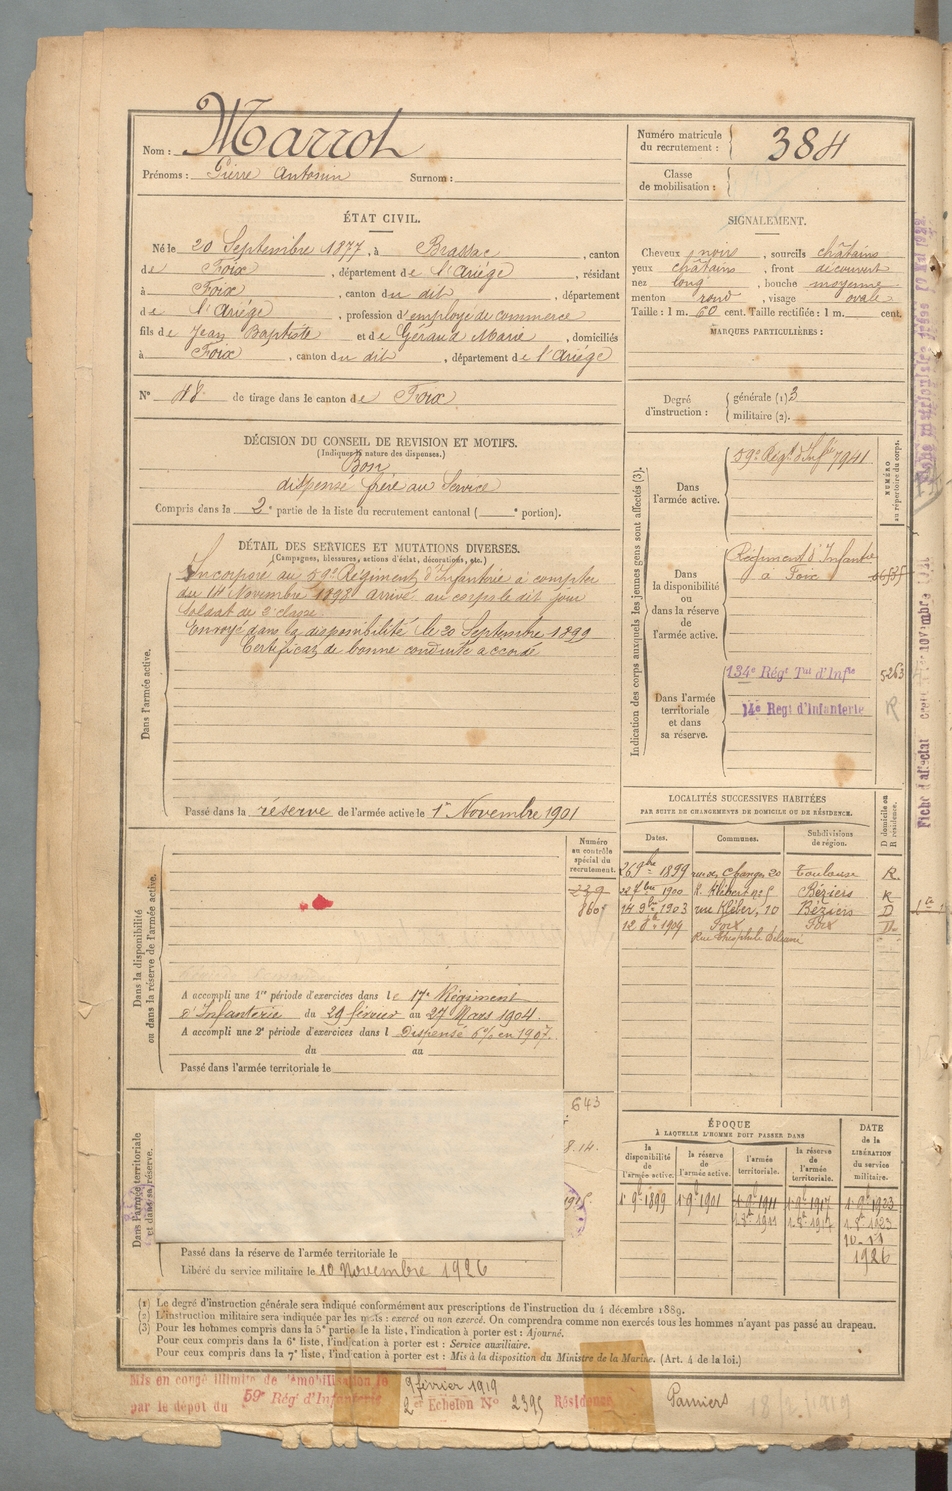 Nom : Marrot
Prénoms : Pierre Antonin Surnom :
Numéro matricule du recrutement : 384
Classe de mobilisation :
ÉTAT CIVIL.
Né le 20 Septembre 1877, à Brassac, canton
de Foix, département de l'Ariège, résidant
à Foix, canton du dit, département
de l'Ariège, profession d'employé de commerce
fils de Jean Baptiste et de Géraud Marie, domiciliés
à Foix, canton du dit, département de l'Ariège
N° 48 de tirage dans le canton de Foix
SIGNALEMENT.
Cheveux noirs, sourcils châtains
yeux châtains, front découvert
nez long, bouche moyenne
menton rond, visage ovale
Taille : 1 m. 60 cent. Taille rectifiée : 1 m. cent.
MARQUES PARTICULIÈRES :
Degré d'instruction : générale (1) 3
militaire (2).
DÉCISION DU CONSEIL DE REVISION ET MOTIFS.
(Indiquer la nature des dispenses.)
Bon
dispensé frère au Service
Compris dans la 2e partie de la liste du recrutement cantonal ( e portion).
DÉTAIL DES SERVICES ET MUTATIONS DIVERSES.
(Campagnes, blessures, actions d'éclat, décorations, etc.)
Dans l'armée active.
Incorporé au 59e Régiment d'Infanterie à compter
du 14 Novembre 1898 arrivé au corps le dit jour
Soldat de 2e classe
Envoyé dans la disponibilité le 20 Septembre 1899
Certificat de bonne conduite accordé
Passé dans la réserve de l'armée active le 1er Novembre 1901
Indication des corps auxquels les jeunes gens sont affectés (3).
NUMÉRO au répertoire du corps.
Dans l'armée active.
59e Régt d'Inf. 7941
Dans la disponibilité ou dans la réserve de l'armée active.
Régiment d'Infantie
à Foix
Dans l'armée territoriale et dans sa réserve.
134e Régt Tal d'Infie 5263
14e Regt d'Infanterie R
LOCALITÉS SUCCESSIVES HABITÉES
PAR SUITE DE CHANGEMENTS DE DOMICILE OU DE RÉSIDENCE.
Dates. Communes. Subdivisions de région. D domicile ou R résidence.
26 9bre 1899 rue des Changes 20 Toulouse R.
27 bre 1900 R. Kléber n° 5 Béziers R
14 9bre 1903 rue Kléber, 10 Béziers D
12 1909 Foix Foix D
Rue Théophile Delcassé
Dans la disponibilité ou dans la réserve de l'armée active.
Numéro au contrôle spécial du recrutement.
229
A accompli une 1re période d'exercices dans le 17e Régiment
d'Infanterie du 29 février au 27 Mars 1904.
A accompli une 2e période d'exercices dans l Dispensé en 1907.
du au
Passé dans l'armée territoriale le
Dans l'armée territoriale et dans sa réserve.
643
8.14.
Passé dans la réserve de l'armée territoriale le
Libéré du service militaire le 10 Novembre 1926
ÉPOQUE
À LAQUELLE L'HOMME DOIT PASSER DANS
la disponibilité de l'armée active. la réserve de l'armée active. l'armée territoriale. la réserve de l'armée territoriale.
DATE de la LIBÉRATION du service militaire.
1 9b 1899 1 9b 1901 1 9b 1911 1 9b 1917 1 9b 1923
1 8b 1911 1 8b 1917 1 8b 1923
10-11
1926
(1) Le degré d'instruction générale sera indiqué conformément aux prescriptions de l'instruction du 4 décembre 1889.
(2) L'instruction militaire sera indiquée par les mots : exercé ou non exercé. On comprendra comme non exercés tous les hommes n'ayant pas passé au drapeau.
(3) Pour les hommes compris dans la 5e partie de la liste, l'indication à porter est : Ajourné.
Pour ceux compris dans la 6e liste, l'indication à porter est : Service auxiliaire.
Pour ceux compris dans la 7e liste, l'indication à porter est : Mis à la disposition du Ministre de la Marine. (Art. 4 de la loi.)
Mis en congé illimité de démobilisation le 9 février 1919
par le dépôt du 59e Rég d'Infanterie 2e Echelon N° 2395 Résidence Pamiers
18/2/1919